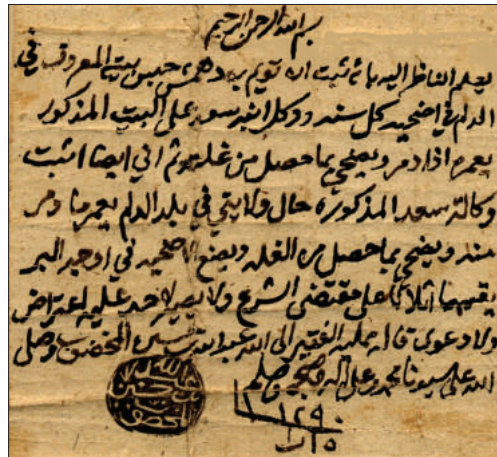 بسم الله الرحمن الرحيم
يعلم الناظر اليه بانه ثبت ان تويم بن دهمش حبس بيت المعروف في
الدلم في اضحيه كل سنه ووكل ابنه سعد على البيت المذكور
يعمره اذا دمر ويضحي بما حصل من غلته ثم اني ايضا اثبت
وكالة سعد المذكوره حال ولايتي في بلد الدلم يعمر ما دمر
منه ويضحي بما حصل من الغله ويصنع الاضحيه في اوجه البر
يقسمها اثلاثا على مقتضى الشرع ولا يصير لاحد عليه اعتراض
ولا دعوى قاله ممليه الفقير الى الله عبدالله بن حسين المخضوب وصلى
الله على سيدنا محمد وعلى اله وصحبه وسلم
١٢٩٠